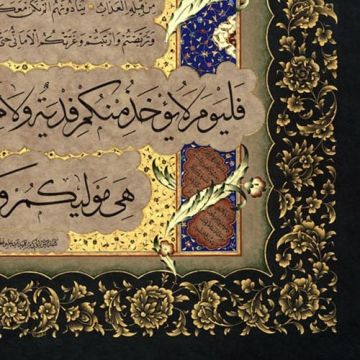 من قبله العذاب ينادونهم الم نكن معكم
وتربصتم وارتبتم وغرتكم الاماني حتى
فاليوم لا يؤخذ منكم فدية ولا
هي موليكم و